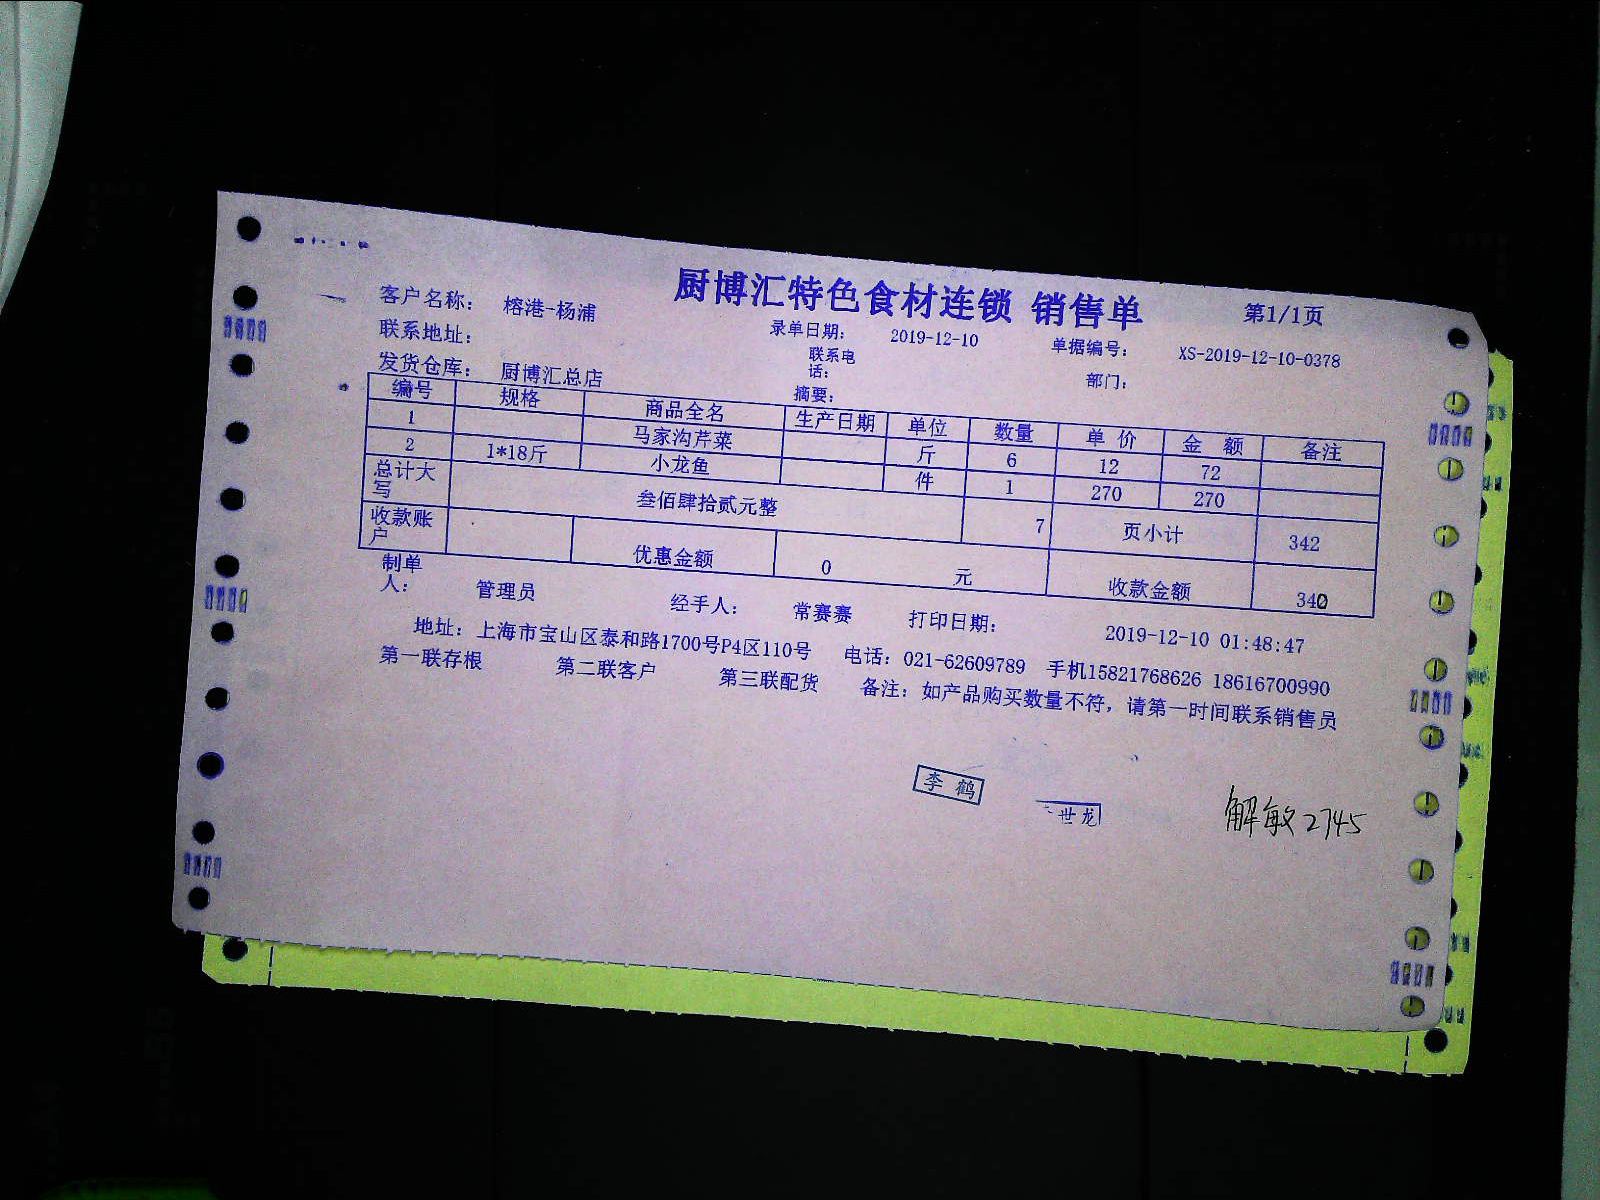 厨博汇特色食材连锁 销售单 第1/1页
客户名称： 榕港-杨浦
录单日期： 2019-12-10 单据编号： XS-2019-12-10-0378
联系地址： 联系电话： 部门：
发货仓库： 厨博汇总店 摘要：
编号 规格 商品全名 生产日期 单位 数量 单价 金额 备注
1 马家沟芹菜 斤 6 12 72
2 1*18斤 小龙鱼 件 1 270 270
总计大写 叁佰肆拾贰元整 7 页小计 342
收款账户 优惠金额 0 元 收款金额 340
制单人： 管理员 经手人： 常赛赛 打印日期： 2019-12-10 01:48:47
地址：上海市宝山区泰和路1700号P4区110号 电话：021-62609789 手机15821768626 18616700990
第一联存根 第二联客户 第三联配货 备注：如产品购买数量不符，请第一时间联系销售员
李鹤
世龙
解敏2745